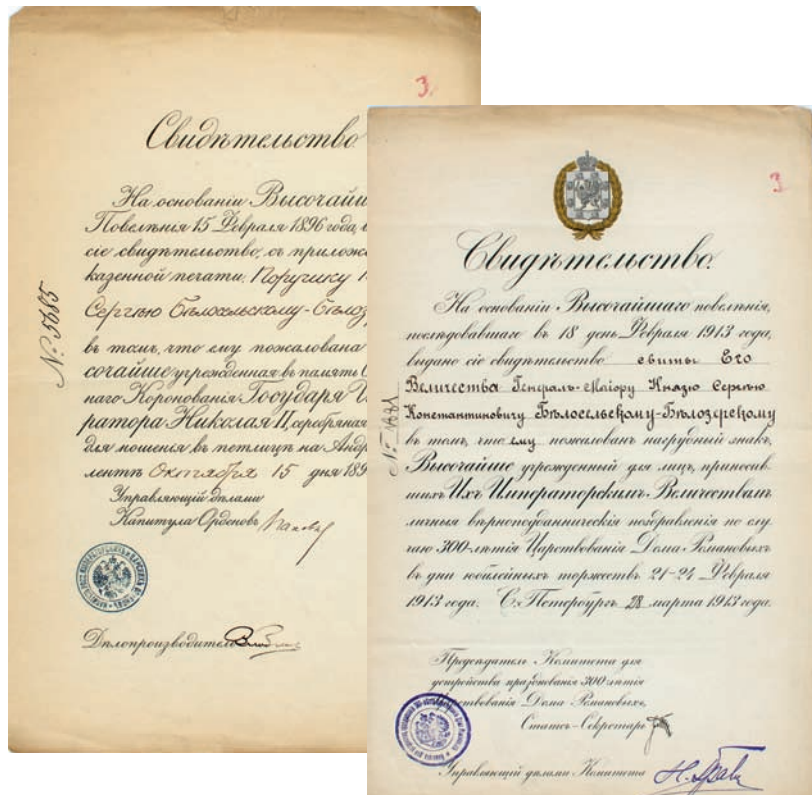 3.
Свидѣтельство.
На основаніи Высочайш
Повелѣнія 15 Февраля 1896 года, в
сіе свидѣтельство, съ прилож
казенной печати, Поручику
Сергѣю Бѣлосельскому-Бѣлоз
въ томъ, что ему пожалована
сочайше учрежденная въ память
наго Коронованія Государя И
ратора Николая II, серебряная
для ношенія въ петлицѣ на Анд
лентѣ Октября 15 дня 189
Управляющій дѣлами
Капитула Орденовъ
Дѣлопроизводитель
№ 5685
3
Свидѣтельство.
На основаніи Высочайшаго повелѣнія,
послѣдовавшаго въ 18 день Февраля 1913 года,
выдано сіе свидѣтельство свиты Его
Величества Генералъ-Маіору Князю Сергѣю
Константиновичу Бѣлосельскому-Бѣлозерскому
въ томъ, что ему пожалованъ нагрудный знакъ,
Высочайше учрежденный для лицъ, приносив
шихъ Ихъ Императорскимъ Величествамъ
личныя вѣрноподданническія поздравленія по слу
чаю 300-лѣтія Царствованія Дома Романовыхъ
въ дни юбилейныхъ торжествъ 21-24 Февраля
1913 года. С.-Петербургъ, 28 марта 1913 года.
Предсѣдатель Комитета для
устройства празднованія 300-лѣтія
ствованія Дома Романовыхъ,
Статсъ-Секретарь
Управляющій дѣлами Комитета